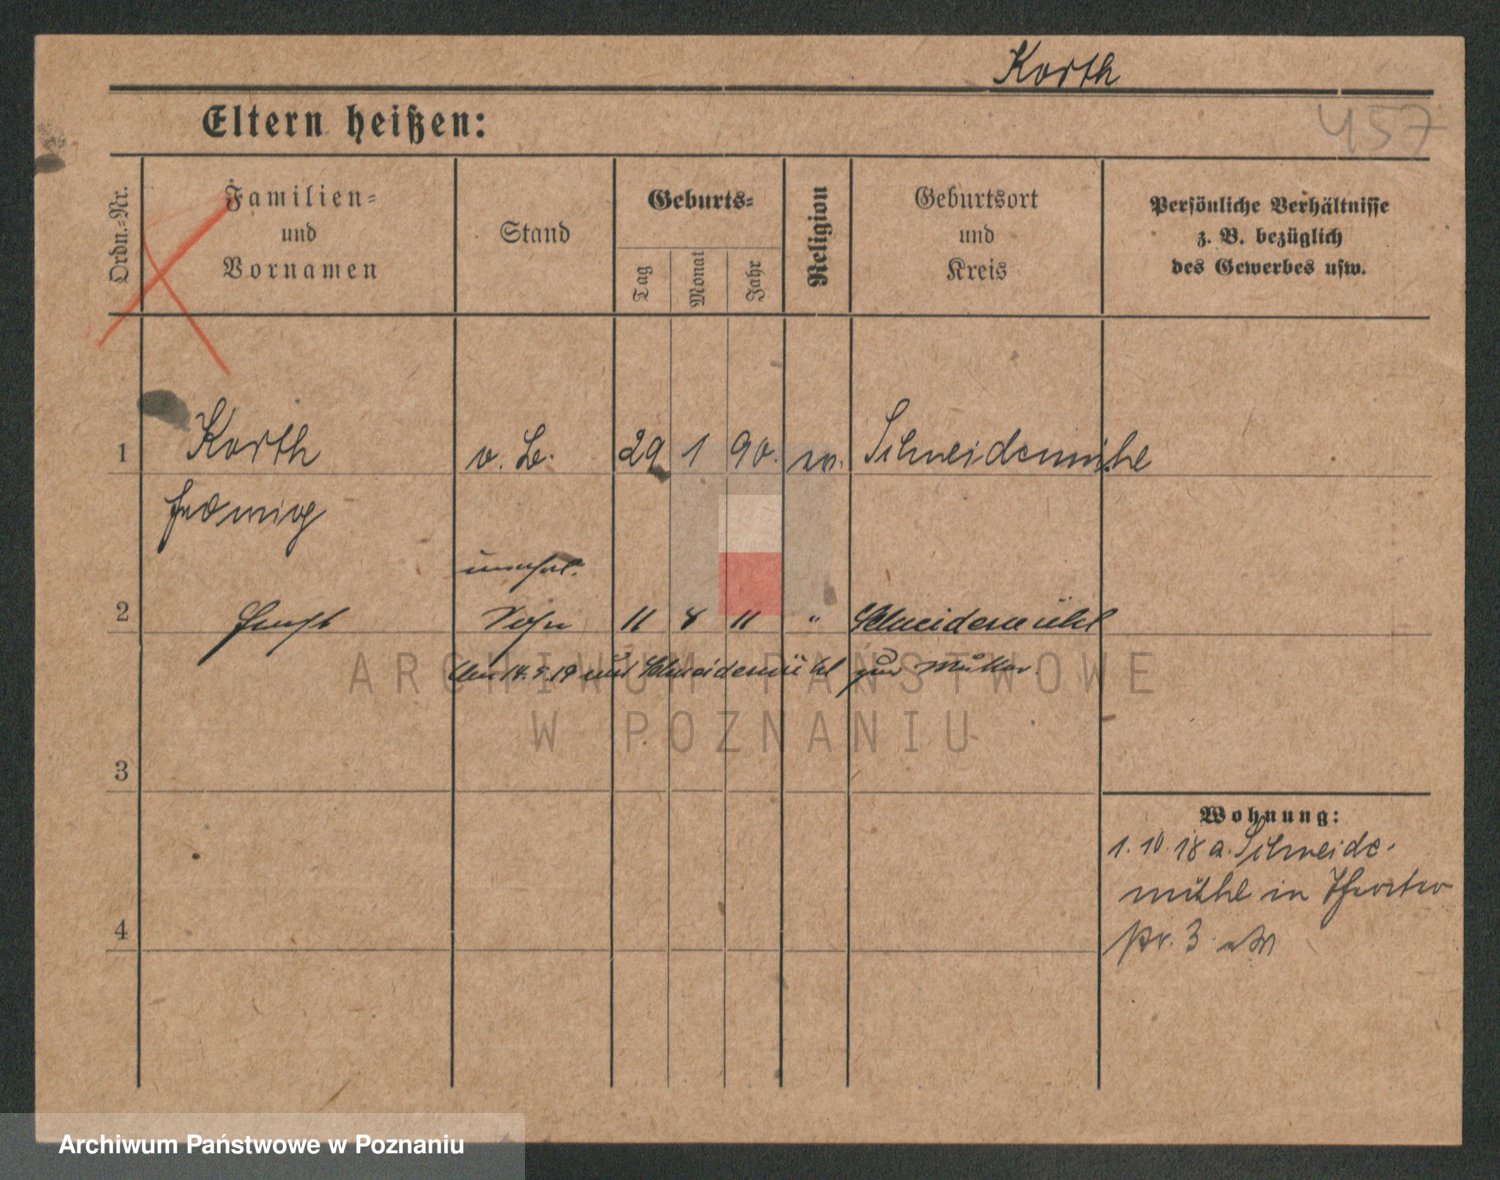 Korth
457
Eltern heißen:
Ordn.-Nr.
Familien-
und
Vornamen
Stand
Geburts-
Tag
Monat
Jahr
Religion
Geburtsort
und
Kreis
Persönliche Verhältnisse
z. B. bezüglich
des Gewerbes usw.
1 Korth o. B. 29 1 90. Schneidemühe
Hedwig
unehel.
2 Sohn 11 8 11 " Schneidemühl
14.5.19 Schneidemühl zur Mutter.
ARCHIWUM PAŃSTWOWE
W POZNANIU
3
Wohnung:
1. 10. 18 a. Schneide-
mühl in
4
3
Archiwum Państwowe w Poznaniu